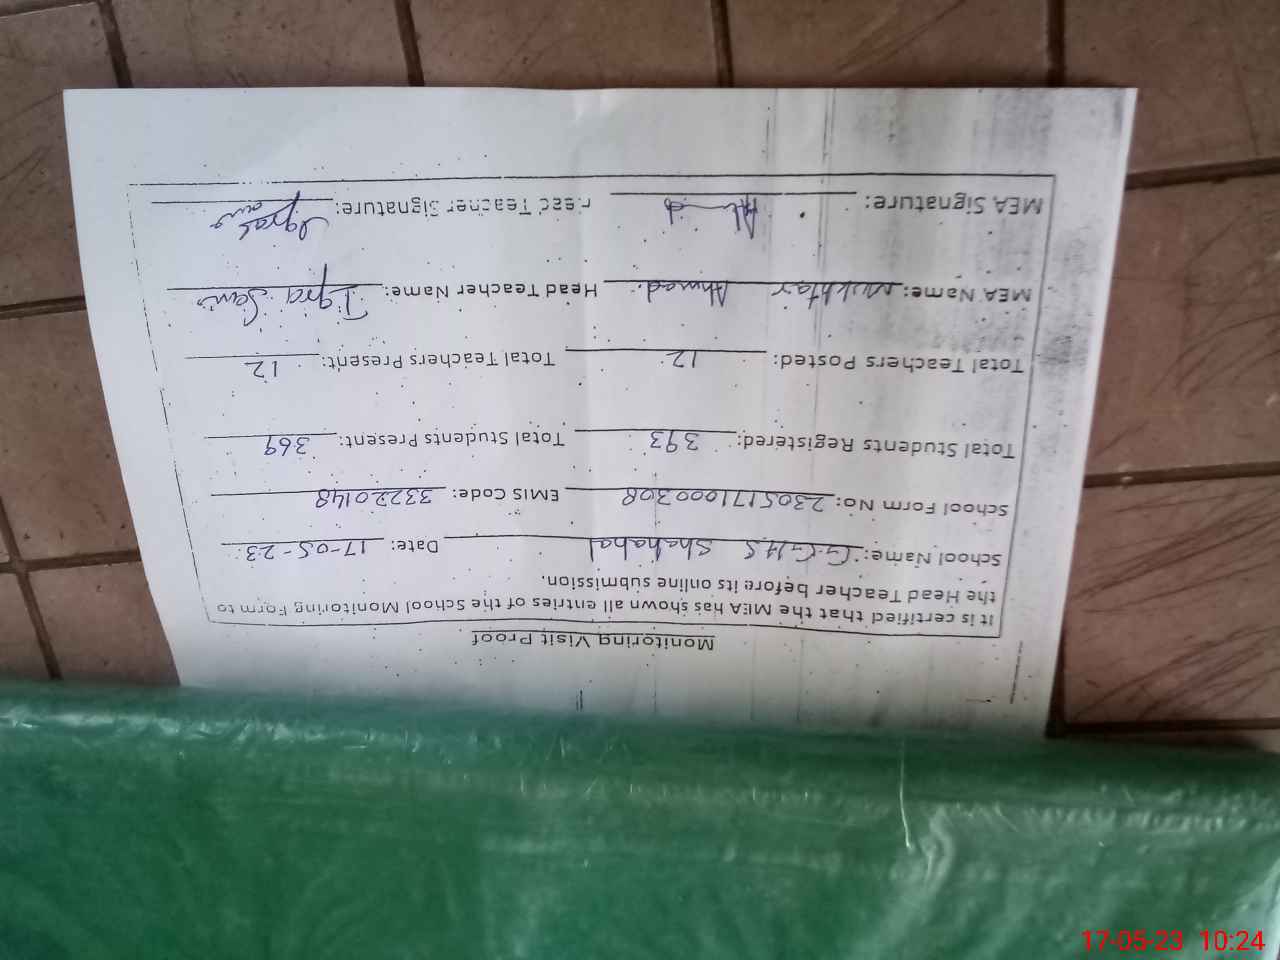 Monitoring Visit Proof
It is certified that the MEA has shown all entries of the School Monitoring Form to
the Head Teacher before its online submission.
School Name: G.G.H.S Shahabal Date: 17-05-23
School Form No: 2305171000308 EMIS Code: 33220148
Total Students Registered: 393 Total Students Present: 369
Total Teachers Posted: 12 Total Teachers Present: 12
MEA Name: Mukhtar Ahmad. Head Teacher Name: Iqra Sani
MEA Signature: Head Teacher Signature: Iqra
17-05-23 10:24